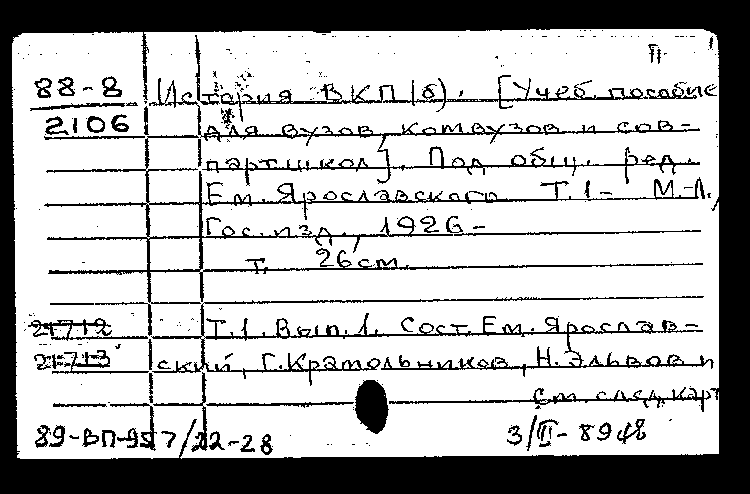 П
88-8 История ВКП(б). [Учеб. пособие
2106 для вузов, комвузов и сов-
партшкол]. Под общ. ред.
Ем. Ярославского. Т.1- М.-Л.,
Гос. изд., 1926-
т. 26cm.
21712 Т.1. Вып.1. Сост. Ем. Ярослав-
21713 ский, Г. Крамольников, Н. Эльвов и
См. след. карт
89-ВП-957/22-28 3/II-8948